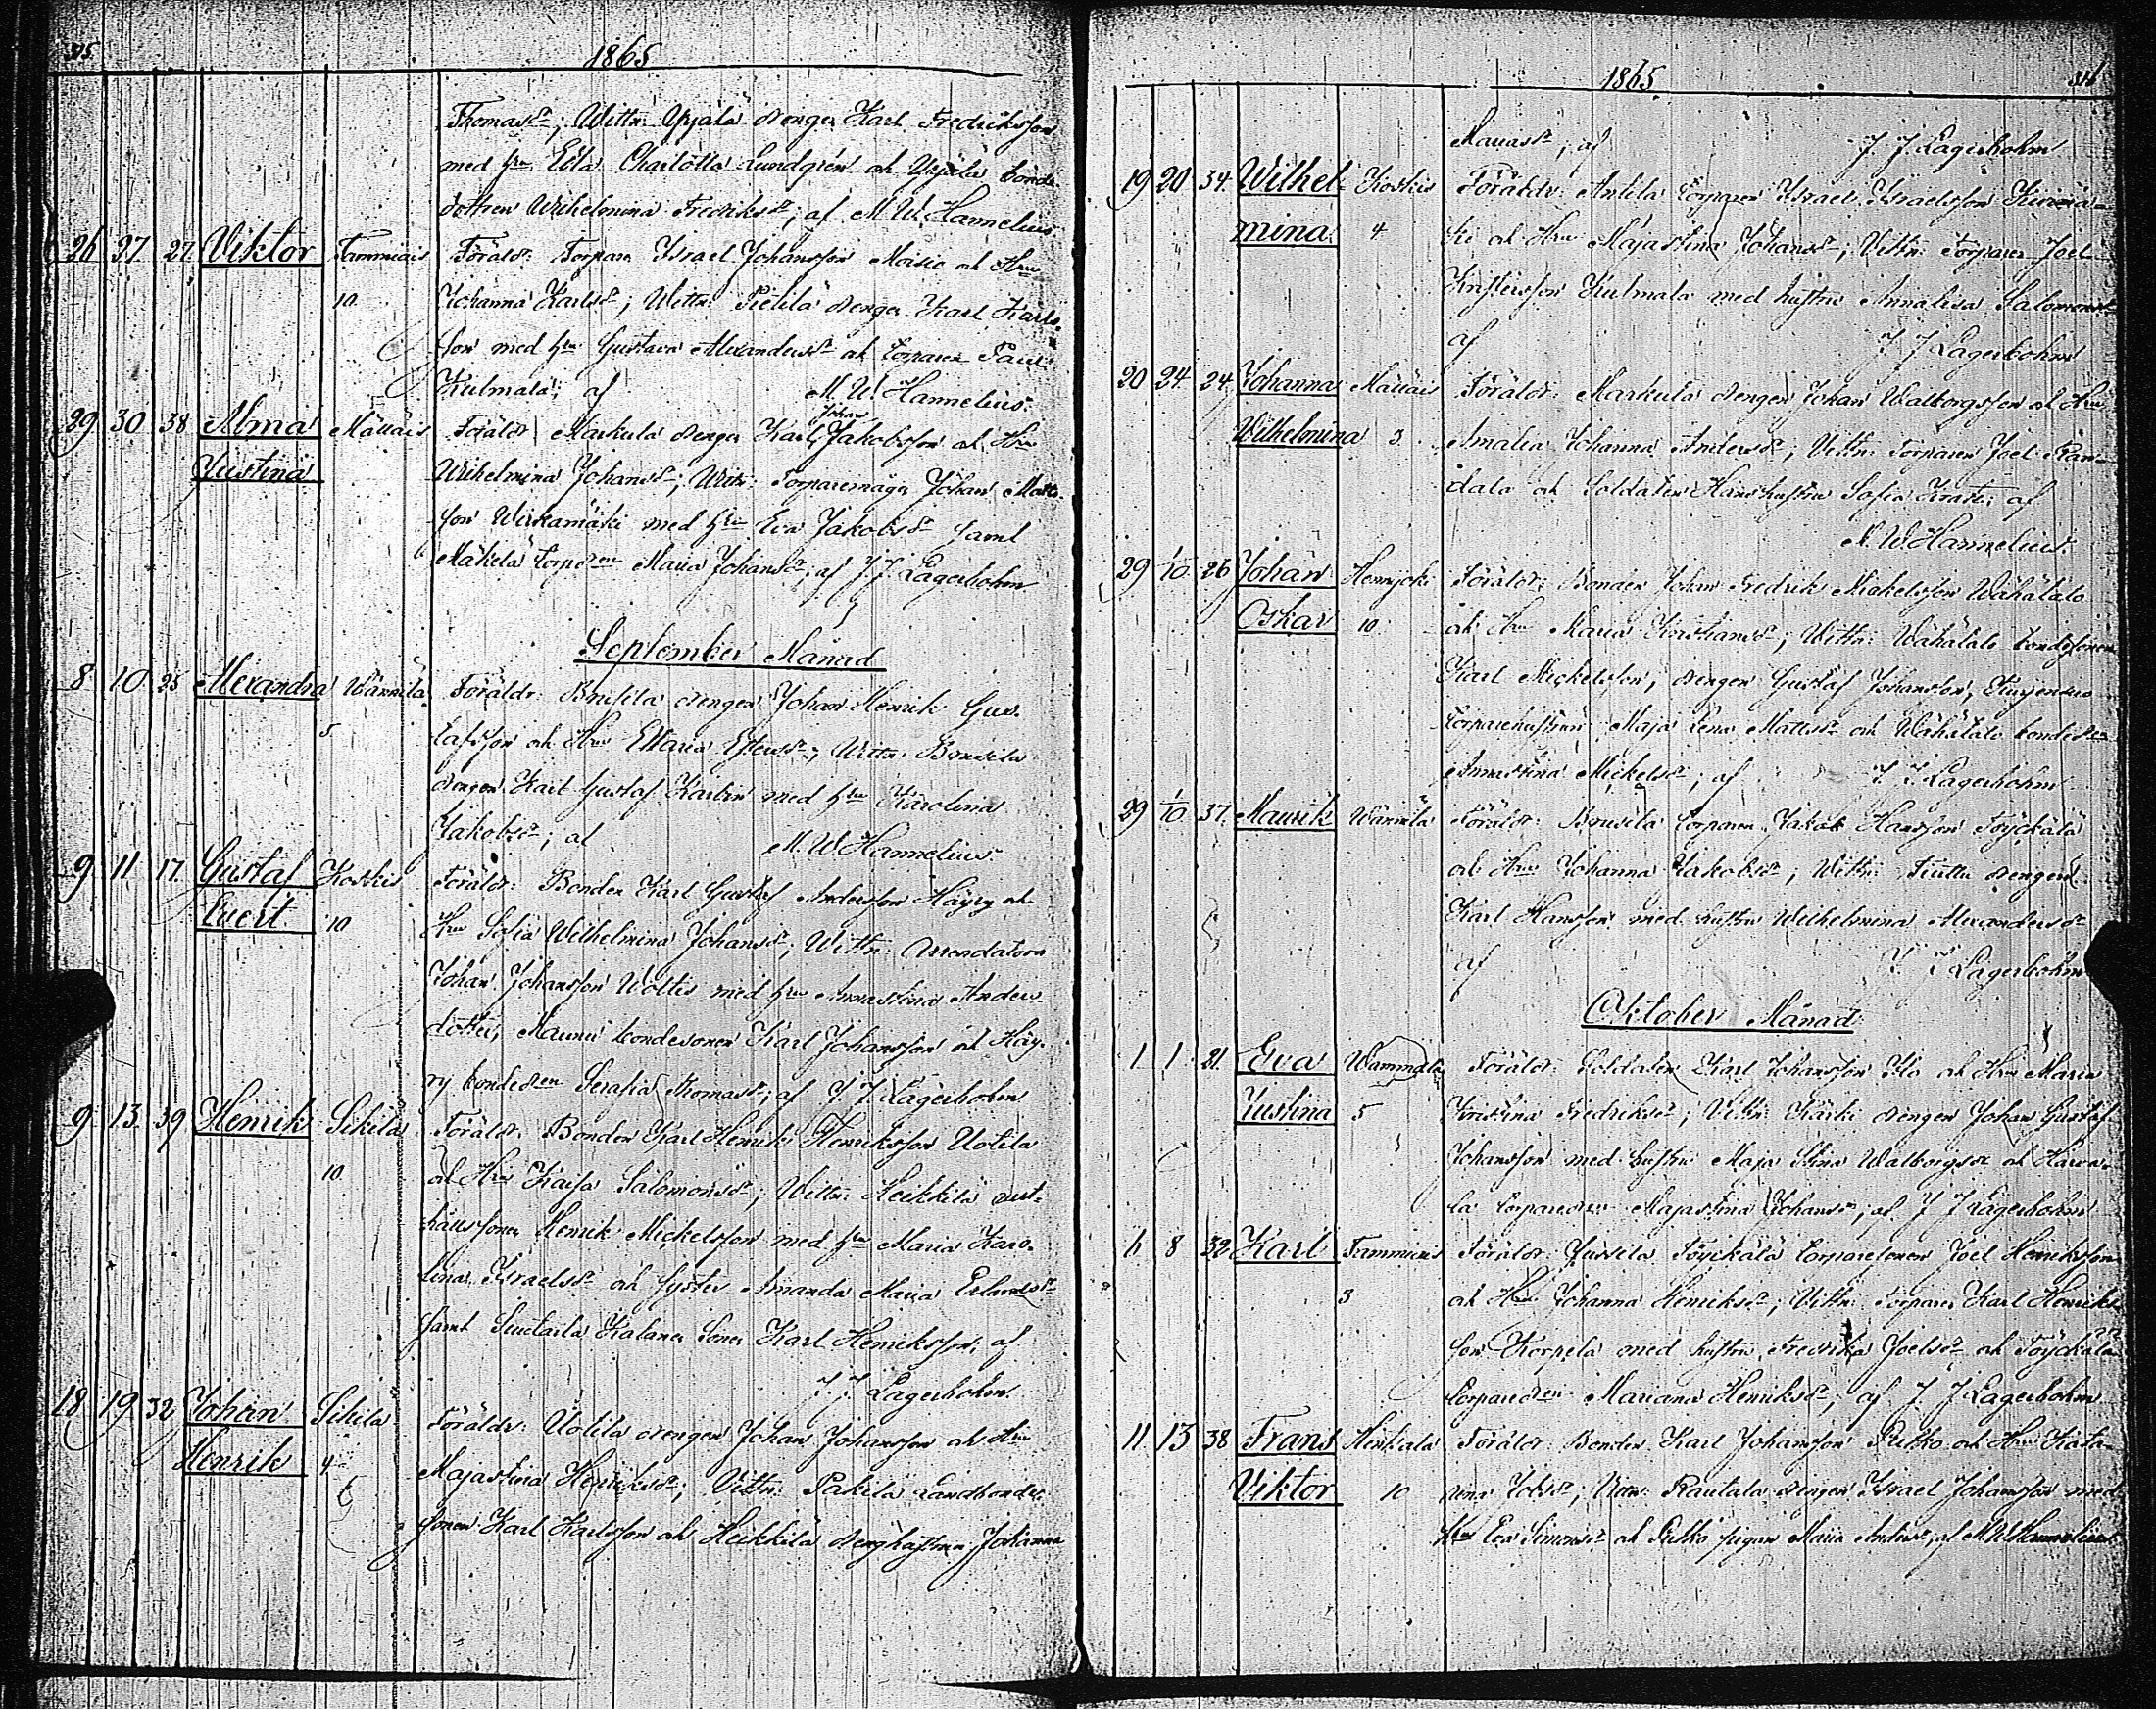 1865
Thomasdr; Wittn: Yrjälä drengen Karl Fredriksson
med hru Edla Charlotta Lundgren och Yrjälä bonde
dottren Wilhelmina Fredriksdr; af M. W. Hannelius
26 27 27 Viktor Tammiais Föräldr: Torparen Israel Johansson Moisio och Hru
10 Johanna Karlsdr; Wittn: Pietilä drengen Karl Karls-
son med hru Gustava Alexandersdr och torparen Paul
Kulmala; af M. W. Hannelius.
29 30 38 Alma Mauais Föräldr: Markula drengen Karl Johan Jakobsson och Hru
Justina Wilhelmina Johansdr; Wittn: Torparemågen Johan Matts-
son Wirkamäki med hru Eva Jakobsdr samt
Mäkelä torpdren Maria Johansdr; af J. J. Lagerbohm
September Månad
8 10 25 Alexandra Wännilä Föräldr: Brusila drengen Johan Henrik Gus-
5 tafsson och Hru Maria Estersdr; Wittn: Brusila
drengen Karl Gustaf Karlsson med hru Karolina
Jakobsdr; af M. W. Hannelius.
9 11 17 Gustaf Koskis Föräldr: Bonden Karl Gustaf Andersson Häyry och
Evert 10 Hru Sofia Wilhelmina Johansdr; Wittn: Arrendatorn
Johan Johansson Woltis med hru Annastina Anders-
dotter, Maunu bondesonen Karl Johansson och Häy-
ry bondedren Serafia Thomasdr; af J. J. Lagerbohm
9 13 39 Henrik Sikilä Föräldr: Bonden Karl Henrik Henriksson Uotila
10 och Hru Kaisa Salomonsdr; Wittn: Heikkilä rust-
hållssonen Henrik Mickelsson med hru Maria Karo-
lina Israelsdr och syster Amanda Maria Erlandsdr
samt Kalanen sonen Karl Henriksson; af
J. J. Lagerbohm
18 19 32 Johan Sikilä Föräldr: Uotila drengen Johan Johansson och Hru
Henrik 4 Majastina Henriksdr; Wittn: Pakila Landbonde-
sonen Karl Karlsson och Heikkilä drenghustrun Johanna
1865
Mauasdr; af J. J. Lagerbohm
19 20 34 Wilhel- Koskis Föräldr: Anttila torparen Israel Israelsson
mina 4 ki och Hru Majastina Johansdr; Wittn: Torparen Joel
Kristersson Kulmala med hustru Annalisa Salomonsdr
af J. J. Lagerbohm
20 24 24 Johanna Mauais Föräldr: Markula drengen Johan Walborgsson och Hru
Wilhelmina 3 Amalia Johanna Andersdr; Wittn: Torparen Joel Ran-
dala och Soldaten hustru Sofia af
M. W. Hannelius.
29 1/10 26 Johan Hennijoki Föräldr: Bonden Johan Fredrik Mickelsson Wähätalo
Oskar 10 och Hru Maria Kristiansdr; Wittn: Wähätalo bondesonen
Karl Mickelsson, drengen Gustaf Johansson,
torparehustrun Maja Lena Mattsdr och Wähätalo bondedren
Annastina Mickelsdr; af J. J. Lagerbohm
29 1/10 37 Maurik Wännilä Föräldr: Brusila torparen Jakob Hansson Töyckälä
och Hru Johanna Jakobsdr; Wittn: drengen
Karl Hansson med hustru Wilhelmina Alexandersdr
af J. J. Lagerbohm
Oktober Månad
1 1 21 Eva Wammala Föräldr: Soldaten Karl Johansson Flo och Hru Maria
Justina 5 Kristina Fredriksdr; Wittn: Kärki drengen Johan Gustaf
Johansson med hustru Maja Stina Walborgsdr och Harva-
la torparedren Majastina Johansdr; af J. J. Lagerbohm
6 8 32 Karl Tammiais Föräldr: Jussila Töyckälä torparesonen Joel Henriksson
3 och Hru Johanna Henriksdr; Wittn: Torparen Karl Henriks-
son Korpela med hustru Fredrika Joelsdr och Töyckälä
torparedren Mariana Henriksdr; af J. J. Lagerbohm
11 13 38 Frans Heikala Föräldr: Bonden Karl Johansson Sutko och Hru Kata-
Viktor 10 rina Jobsdr; Wittn: Rautala drengen Israel Johansson med
hru Eva Simonsdr och Sutko pigan Maria Andersdr; af M. W. Hannelius